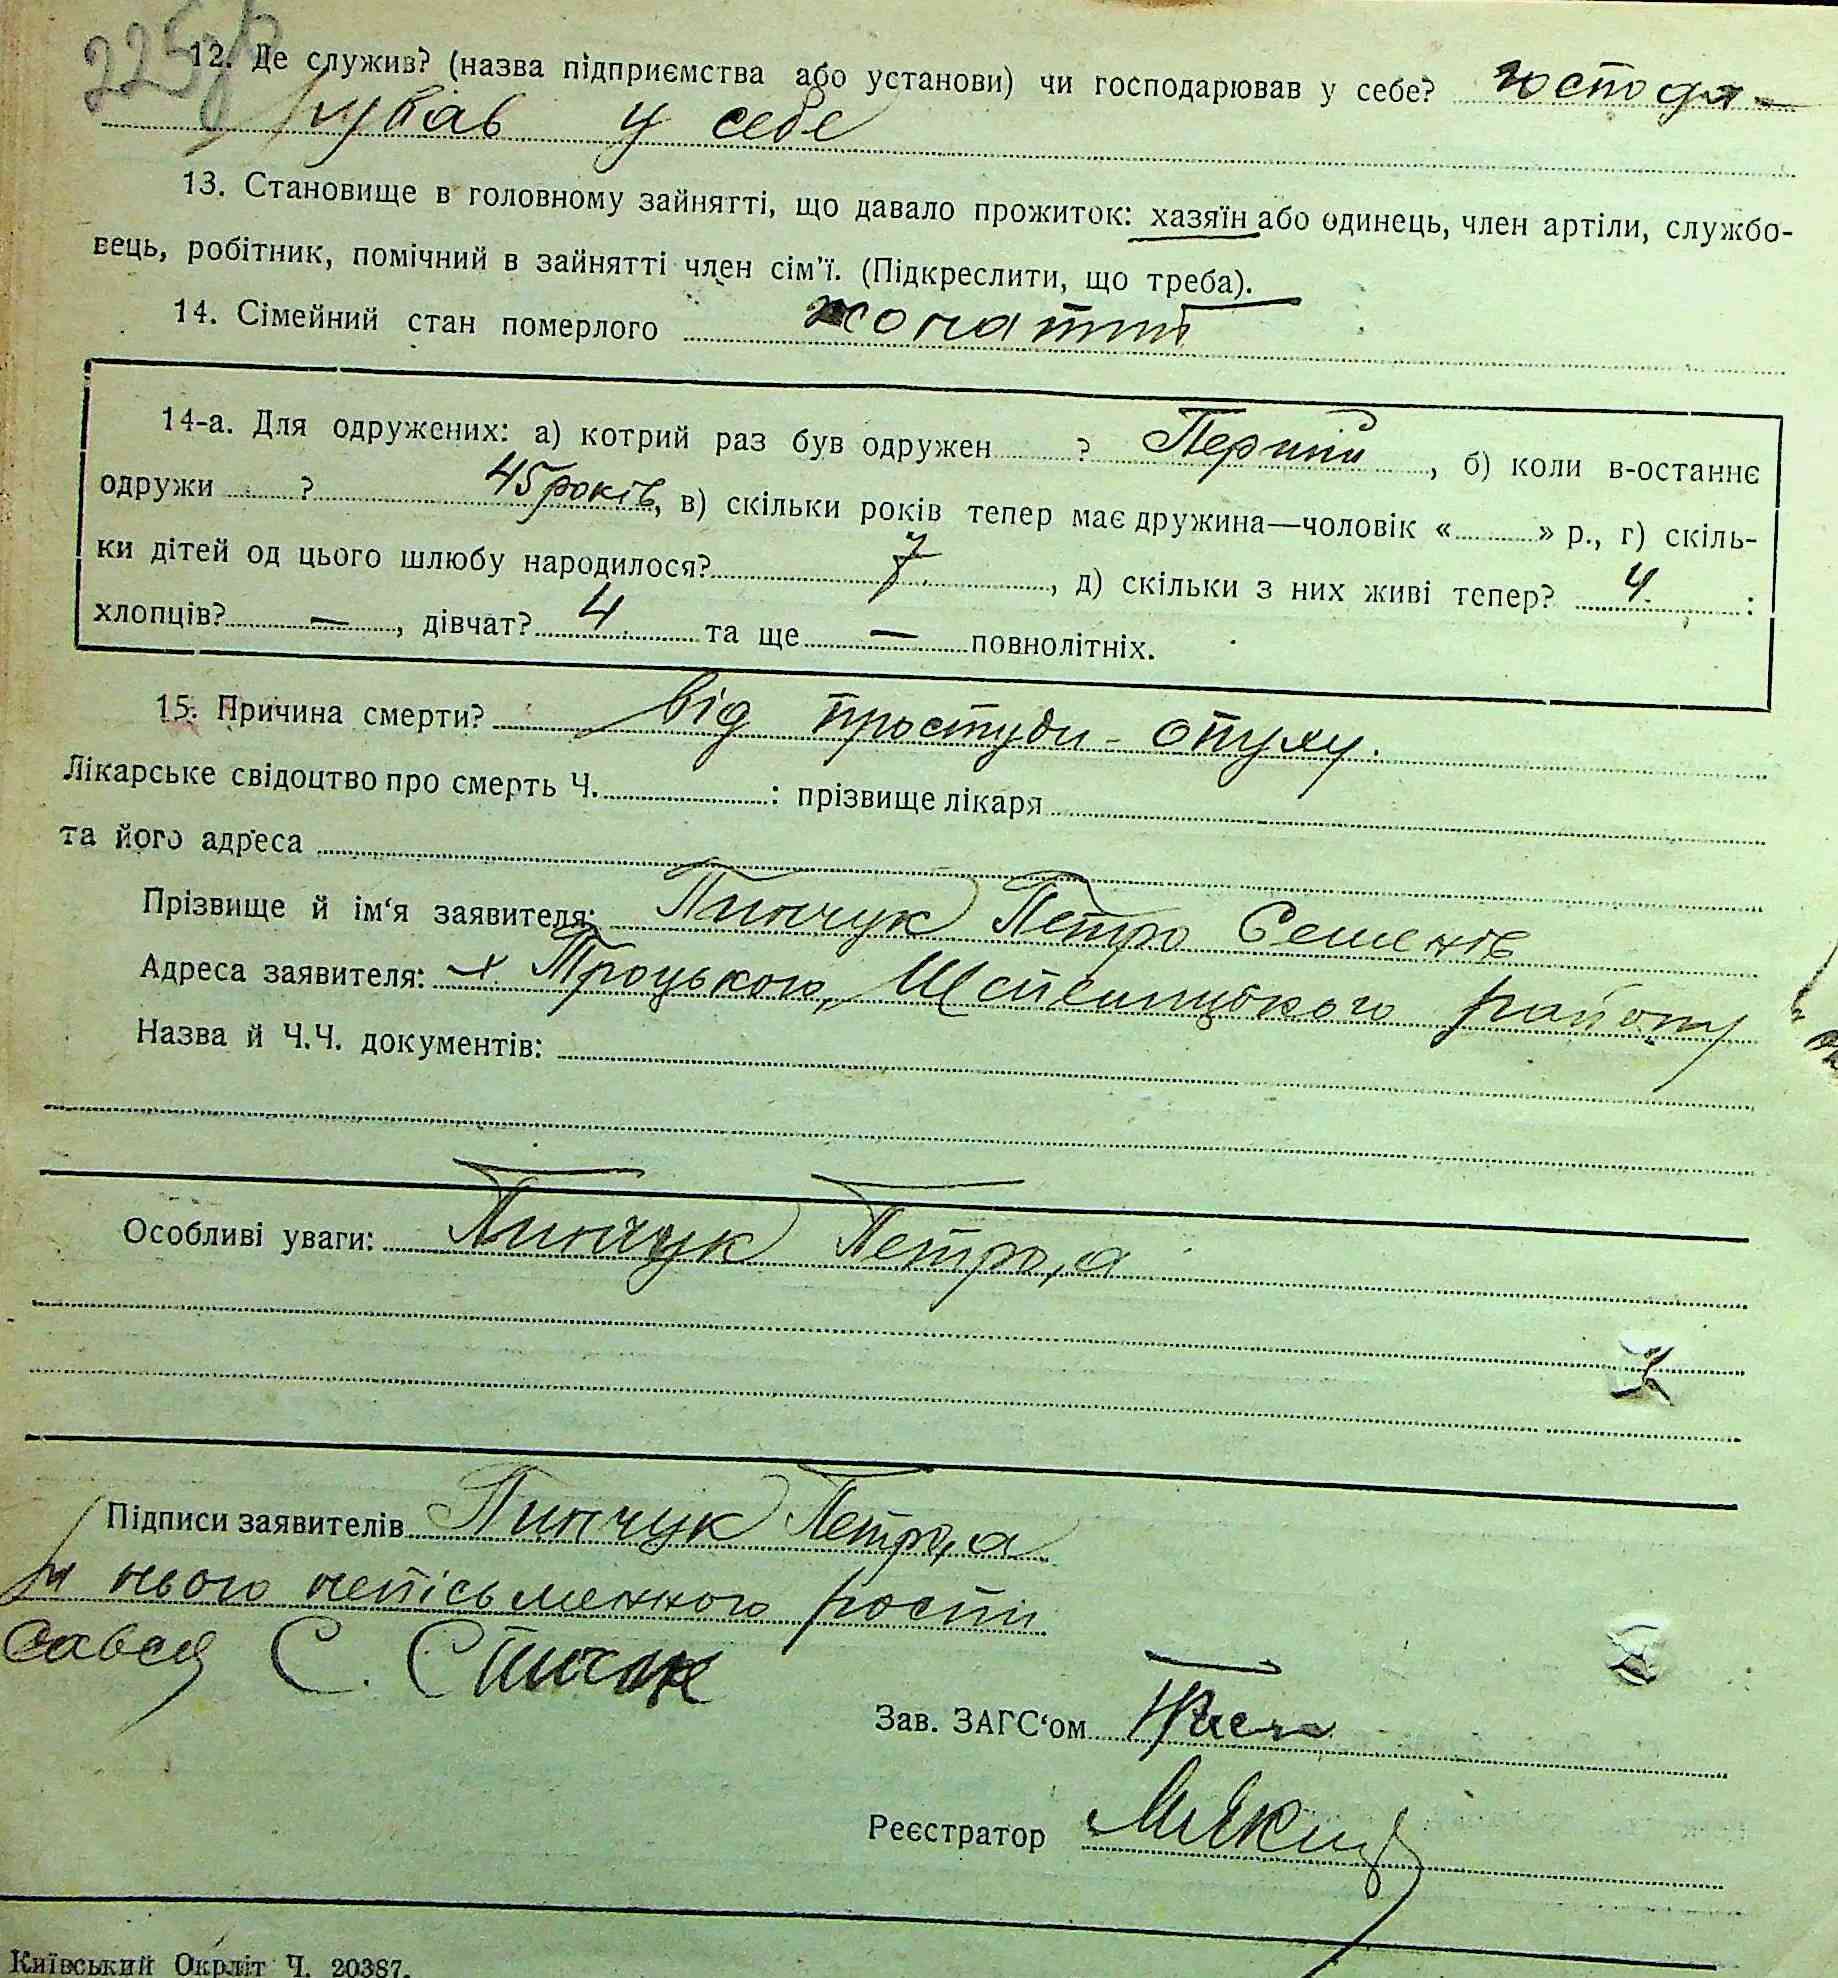 225
12. Де служив? (назва підприємства або установи) чи господарював у себе? господа-
рував у себе
13. Становище в головному зайнятті, що давало прожиток: хазяїн або одинець, член артіли, службо-
вець, робітник, помічний в зайнятті член сім'ї. (Підкреслити, що треба).
14. Сімейний стан померлого жонатий
14-а. Для одружених: а) котрий раз був одружен ? Перший, б) коли в-останнє
одружи ? 45 років, в) скільки років тепер має дружина—чоловік «      » р., г) скіль-
ки дітей од цього шлюбу народилося? 7, д) скільки з них живі тепер? 4:
хлопців? —, дівчат? 4 та ще — повнолітніх.
15. Причина смерти? від простуди - опуху.
Лікарське свідоцтво про смерть Ч. : прізвище лікаря
та його адреса
Прізвище й ім'я заявителя: Пинчук Петро Семенів
Адреса заявителя: х. Троцького, району
Назва й Ч.Ч. документів:
Особливі уваги: Пинчук Петро, а
Підписи заявителів Пинчук Петро, а
за нього неписьменного роспи
сався С. Спичак
Зав. ЗАГС'ом
Реєстратор
Київський Окрліт Ч. 20387.